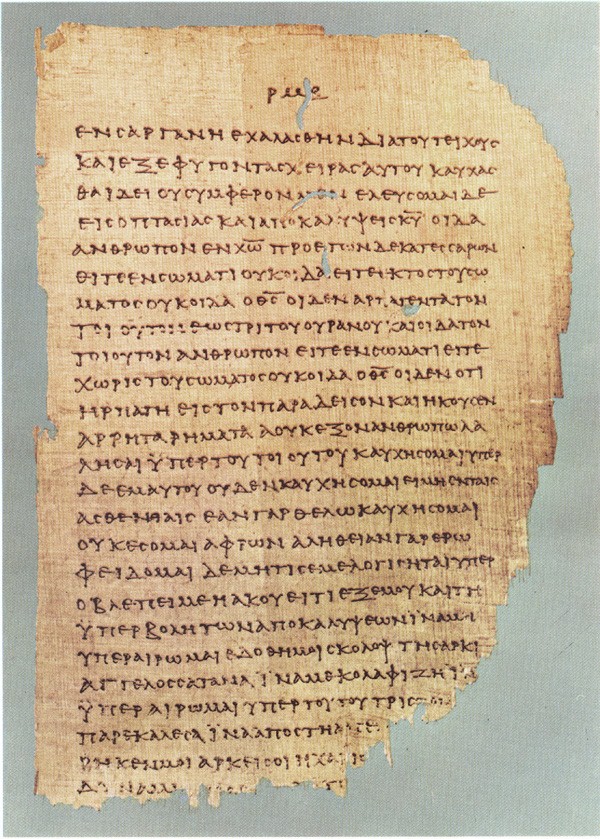 ΕΝϹΑΡΓΑΝΗ ΕΧΑΛΑϹΘΗΝ ΔΙΑΤΟΥΤΕΙΧΟΥϹ
ΚΑΙΕΞΕΦΥΓΟΝΤΑϹΧΕΙΡΑϹΑΥΤΟΥ ΚΑΥΧΑϹ
ΘΑΙΔΕΙ ΟΥϹΥΜΦΕΡΟΝ ΕΛΕΥϹΟΜΑΙΔΕ
ΕΙϹΟΠΤΑϹΙΑϹ ΚΑΙΑΠΟΚΑΛΥΨΕΙϹΚ̅Υ̅ ΟΙΔΑ
ΑΝΘΡΩΠΟΝ ΕΝΧ̅Ω̅ ΠΡΟΕΤΩΝΔΕΚΑΤΕϹϹΑΡΩΝ
ΕΙΤΕΕΝϹΩΜΑΤΙ ΟΥΚΟΙΔΑ ΕΙΤΕΕΚΤΟϹΤΟΥϹΩ
ΜΑΤΟϹΟΥΚΟΙΔΑ ΟΘ̅Ϲ̅ ΟΙΔΕΝ ΑΡΠΑΓΕΝΤΑΤΟΝ
ΤΟΙΟΥΤΟΝ ΕΩϹΤΡΙΤΟΥΟΥΡΑΝΟΥ ΚΑΙΟΙΔΑΤΟΝ
ΤΟΙΟΥΤΟΝ ΑΝΘΡΩΠΟΝ ΕΙΤΕΕΝϹΩΜΑΤΙ ΕΙΤΕ
ΧΩΡΙϹΤΟΥϹΩΜΑΤΟϹΟΥΚΟΙΔΑ ΟΘ̅Ϲ̅ ΟΙΔΕΝ ΟΤΙ
ΗΡΠΑΓΗ ΕΙϹΤΟΝΠΑΡΑΔΕΙϹΟΝ ΚΑΙΗΚΟΥϹΕΝ
ΑΡΡΗΤΑΡΗΜΑΤΑ ΑΟΥΚΕΞΟΝΑΝΘΡΩΠΩΛΑ
ΛΗϹΑΙ ΫΠΕΡΤΟΥΤΟΙΟΥΤΟΥ ΚΑΥΧΗϹΟΜΑΙΥΠΕΡ
ΔΕΕΜΑΥΤΟΥ ΟΥΔΕΝΚΑΥΧΗϹΟΜΑΙΕΙΜΗΕΝΤΑΙϹ
ΑϹΘΕΝΙΑΙϹ ΕΑΝΓΑΡΘΕΛΩΚΑΥΧΗϹΟΜΑΙ
ΟΥΚΕϹΟΜΑΙ ΑΦΡΩΝ ΑΛΗΘΕΙΑΝΓΑΡΕΡΩ
ΦΕΙΔΟΜΑΙ ΔΕΜΗΤΙϹΕΜΕΛΟΓΙϹΗΤΑΙΥΠΕΡ
ΟΒΛΕΠΕΙΜΕΗΑΚΟΥΕΙΤΙΕΞΕΜΟΥΚΑΙΤΗ
ΫΠΕΡΒΟΛΗΤΩΝΑΠΟΚΑΛΥΨΕΩΝΪΝΑΜΗ
ΥΠΕΡΑΙΡΩΜΑΙΕΔΟΘΗΜΟΙϹΚΟΛΟΨ ΤΗϹΑΡΚΙ
ΑΓΓΕΛΟϹϹΑΤΑΝΑ ΪΝΑΜΕΚΟΛΑΦΙΖΗΪΝΑ
ΫΠΕΡΑΙΡΩΜΑΙ ΥΠΕΡΤΟΥΤΟΥΤΡΙϹ
ΠΑΡΕΚΑΛΕϹΑΪΝΑΑΠΟϹΤΗ
ΡΗΚΕΝΜΟΙ ΑΡΚΕΙϹΟΙΗΧΑΡΙϹ
ΔΥΝΑΜΙ